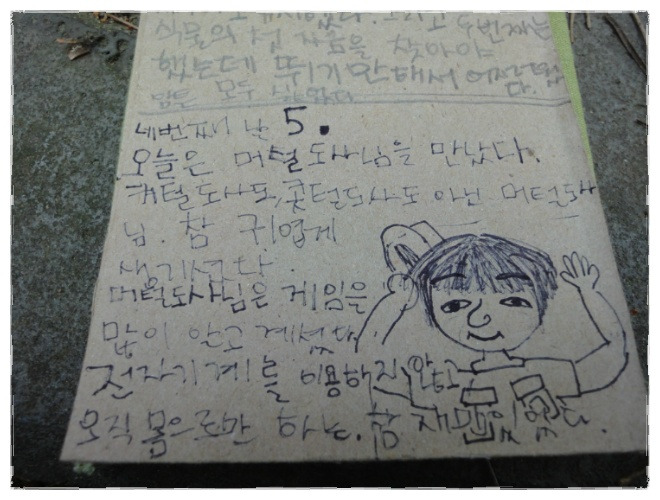 식물의
찾아야
했는데 뛰기만 해서 어려웠
다.
모두
네번째 날 5.
오늘은 머털도사님을 만났다.
커털도사도, 콧털도사도 아닌 머털도사
님. 참 귀엽게
생기셨다.
머털도사님은 게임을
많이 알고 계셨다.
전자기계를 이용하지 않고
오직 몸으로만 하는. 참 재밌었다.